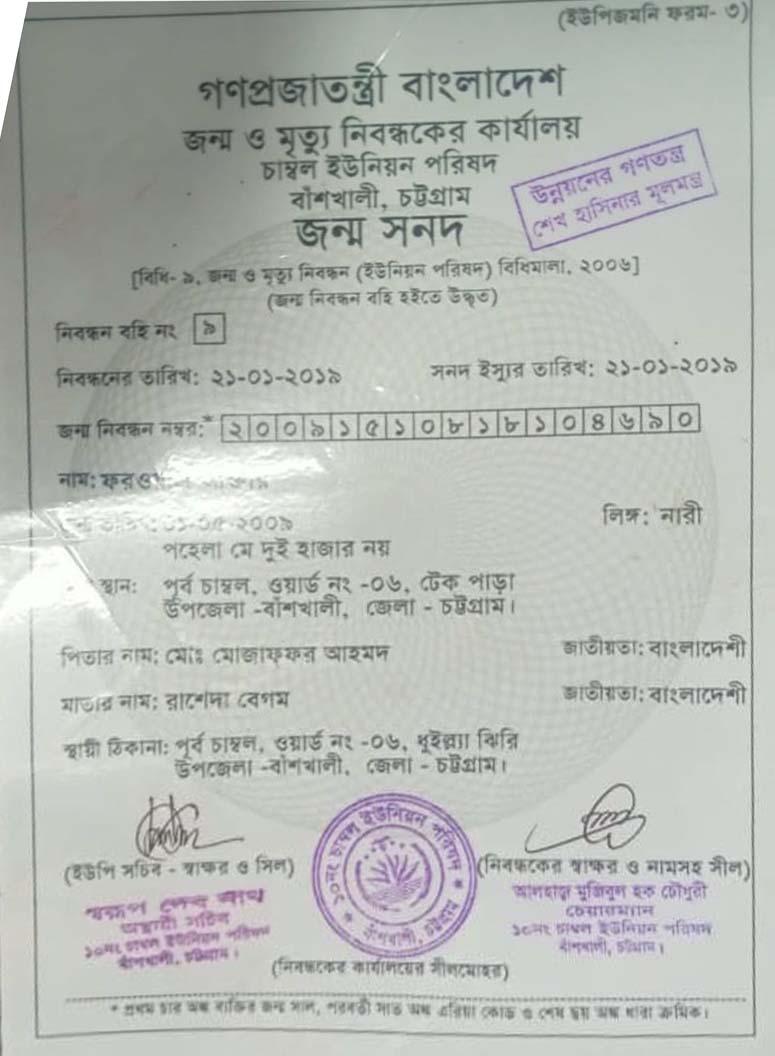 (ইউপিজমনি ফরম- ৩)
গণপ্রজাতন্ত্রী বাংলাদেশ
জন্ম ও মৃত্যু নিবন্ধকের কার্যালয়
চাম্বল ইউনিয়ন পরিষদ
বাঁশখালী, চট্টগ্রাম
উন্নয়নের গণতন্ত্র
শেখ হাসিনার মূলমন্ত্র
জন্ম সনদ
[বিধি- ৯, জন্ম ও মৃত্যু নিবন্ধন (ইউনিয়ন পরিষদ) বিধিমালা, ২০০৬]
(জন্ম নিবন্ধন বহি হইতে উদ্ধৃত)
নিবন্ধন বহি নং ৯
নিবন্ধনের তারিখ: ২১-০১-২০১৯ সনদ ইস্যুর তারিখ: ২১-০১-২০১৯
জন্ম নিবন্ধন নম্বর:* ২০০৯১৫১০৮১৮১০৪৬৯০
নাম:
০১-০৫-২০০৯ লিঙ্গ: নারী
পহেলা মে দুই হাজার নয়
স্থান: পূর্ব চাম্বল, ওয়ার্ড নং -০৬, টেক পাড়া
উপজেলা -বাঁশখালী, জেলা - চট্টগ্রাম।
পিতার নাম: মোঃ মোজাফ্ফর আহমদ জাতীয়তা: বাংলাদেশী
মাতার নাম: রাশেদা বেগম জাতীয়তা: বাংলাদেশী
স্থায়ী ঠিকানা: পূর্ব চাম্বল, ওয়ার্ড নং -০৬, ধুইল্যা ঝিরি
উপজেলা -বাঁশখালী, জেলা - চট্টগ্রাম।
(ইউপি সচিব - স্বাক্ষর ও সিল)
১০নং চাম্বল ইউনিয়ন পরিষদ
বাঁশখালী, চট্টগ্রাম।
১০নং চাম্বল ইউনিয়ন পরিষদ
বাঁশখালী, চট্টগ্রাম
(নিবন্ধকের স্বাক্ষর ও নামসহ সীল)
আলহাজ্ব মুজিবুল হক চৌধুরী
চেয়ারম্যান
১০নং চাম্বল ইউনিয়ন পরিষদ
বাঁশখালী, চট্টগ্রাম।
(নিবন্ধকের কার্যালয়ের সীলমোহর)
* প্রথম চার অঙ্ক ব্যক্তির জন্ম সাল, পরবর্তী সাত অঙ্ক এরিয়া কোড ও শেষ ছয় অঙ্ক ধারা ক্রমিক।